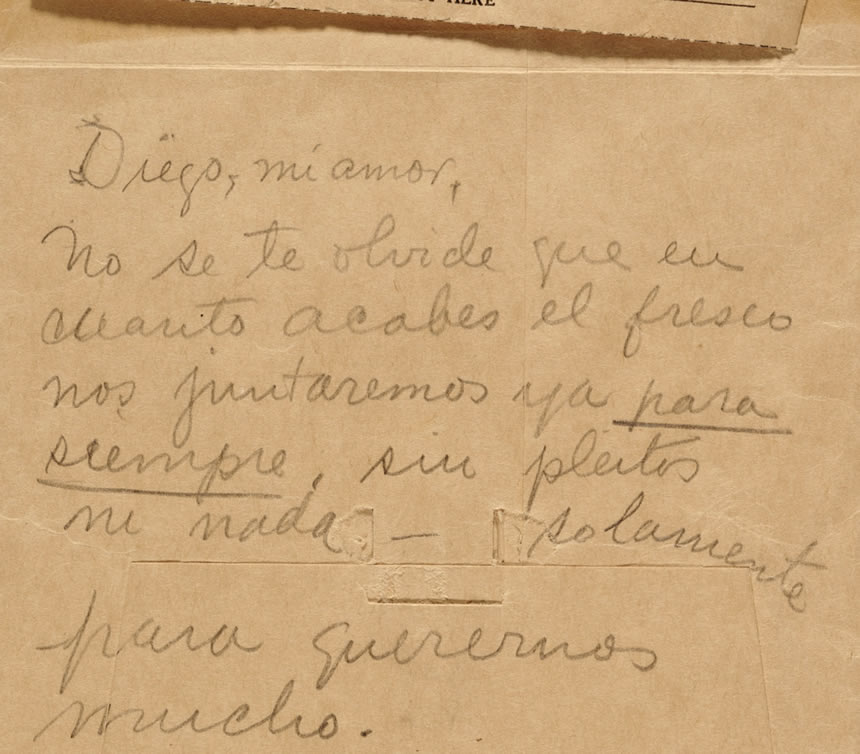 HERE
Diego, mi amor,
No se te olvide que en
cuanto acabes el fresco
nos juntaremos ya para
siempre, sin pleitos
ni nada — solamente
para querernos
mucho.